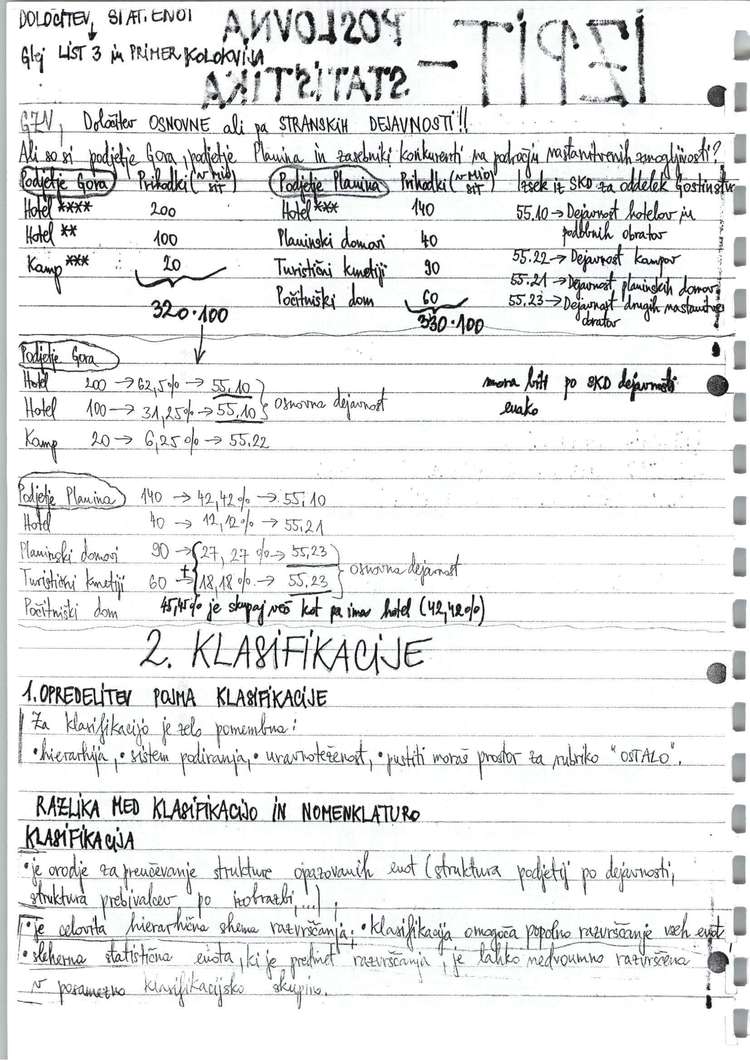 DOLOČITEV STAT. ENOT
Glej LIST 3 in PRIMER KOLOKVIJA
POSLOVNA
STATISTIKA - IZPIT
GZN, Določitev OSNOVNE ali pa STRANSKIH DEJAVNOSTI!!
Ali so si podjetje Gora, podjetje Planina in zasebniki konkurenti na področju nastanitvenih zmogljivosti?
Podjetje Gora Prihodki (v Mio SIT) Podjetje Planina Prihodki (v Mio SIT) Izsek iz SKD za oddelek Gostinstvo
Hotel **** 200 Hotel *** 140 55.10 → Dejavnost hotelov in
podobnih obratov
Hotel ** 100 Planinski domovi 40 55.22 → Dejavnost kampov
Kamp *** 20 Turistični kmetiji 90 55.21 → Dejavnost planinskih domov
Počitniški dom 60 55.23 → Dejavnost drugih nastanitve
obratov
320·100 330·100
Podjetje Gora
Hotel 200 → 62,5% → 55.10 mora biti po SKD dejavnosti
Hotel 100 → 31,25% → 55.10 osnovna dejavnost enako
Kamp 20 → 6,25% → 55.22
Podjetje Planina 140 → 42,42% → 55.10
Hotel 40 → 12,12% → 55.21
Planinski domovi 90 → 27,27% → 55,23
Turistični kmetiji 60 + → 18,18% → 55,23 osnovna dejavnost
Počitniški dom 45,45% je skupaj več kot pa ima hotel (42,42%)
2. KLASIFIKACIJE
1. OPREDELITEV POJMA KLASIFIKACIJE
Za klasifikacijo je zelo pomembna:
• hierarhija, • sistem podiranja, • uravnoteženost, • pustiti moraš prostor za rubriko "OSTALO".
RAZLIKA MED KLASIFIKACIJO IN NOMENKLATURO
KLASIFIKACIJA
• je orodje za preučevanje strukture opazovanih enot (struktura podjetij po dejavnosti,
struktura prebivalcev po izobrazbi, ...)
• je celovita hierarhična shema razvrščanja; • klasifikacija omogoča popolno razvrščanje vseh enot
• sleherna statistična enota, ki je predmet razvrščanja, je lahko nedvoumno razvrščena
v posamezno klasifikacijsko skupino.